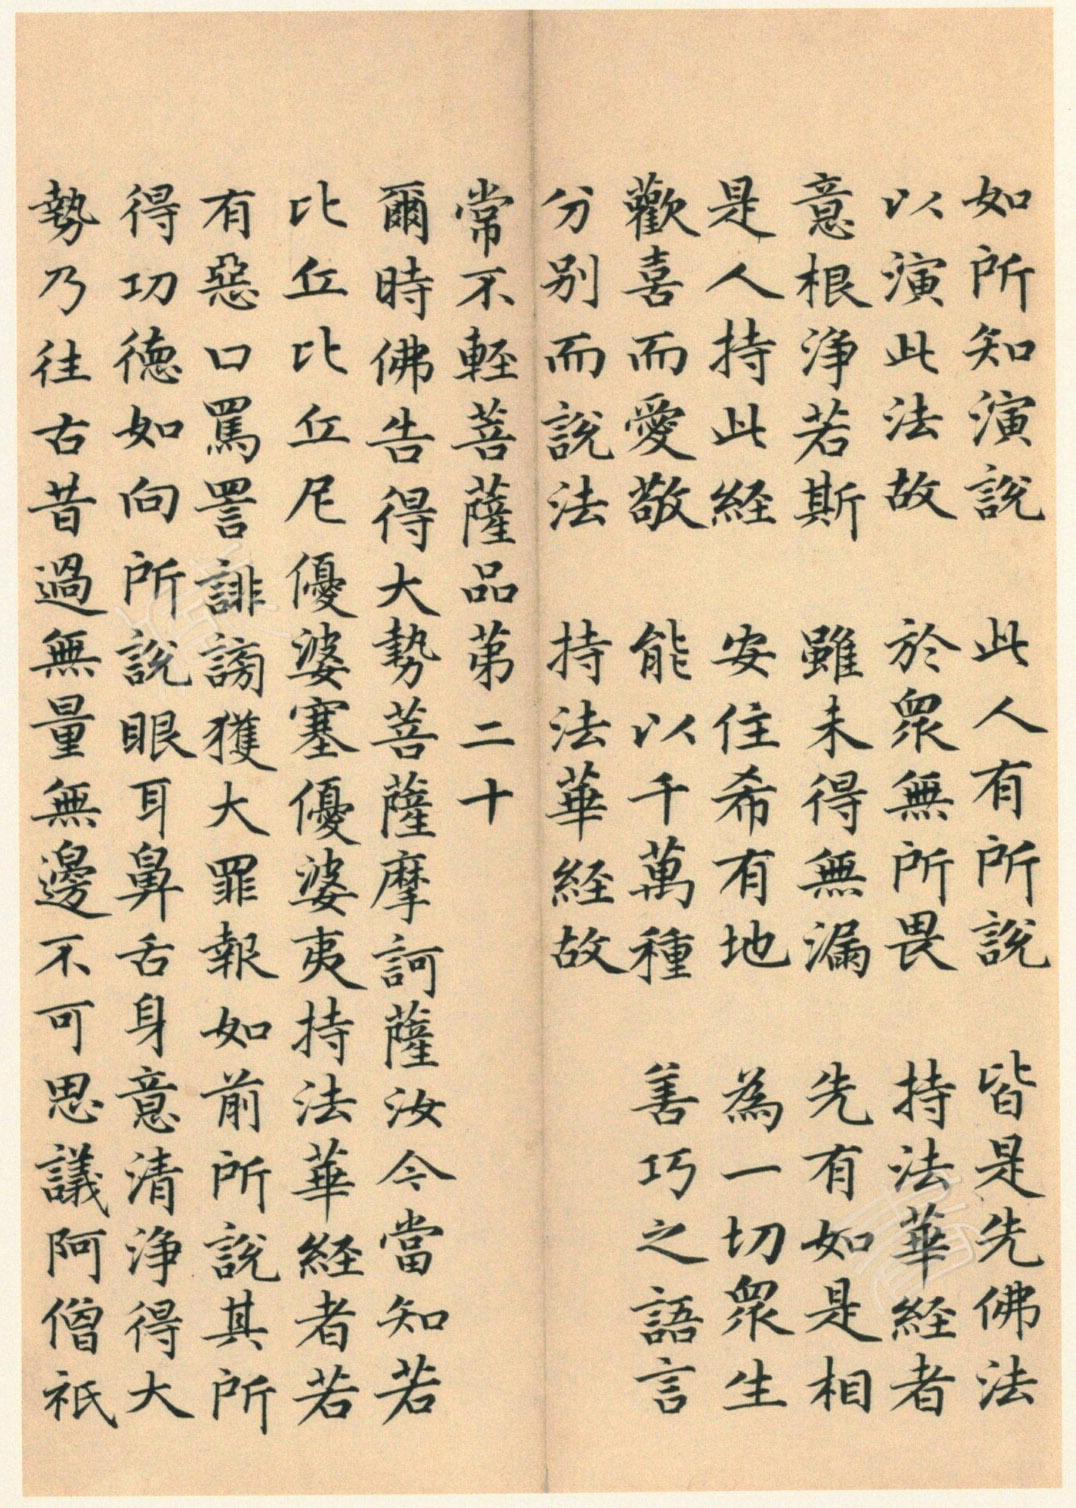 如所知演說　此人有所說　皆是先佛法
以演此法故　於眾無所畏　持法華経者
意根淨若斯　雖未得無漏　先有如是相
是人持此経　安住希有地　為一切眾生
歡喜而愛敬　能以千萬種　善巧之語言
分別而說法　持法華経故
常不輕菩薩品第二十
爾時佛告得大勢菩薩摩訶薩汝今當知若
比丘比丘尼優婆塞優婆夷持法華経者若
有惡口罵詈誹謗獲大罪報如前所說其所
得功德如向所說眼耳鼻舌身意清淨得大
勢乃往古昔過無量無邊不可思議阿僧祇